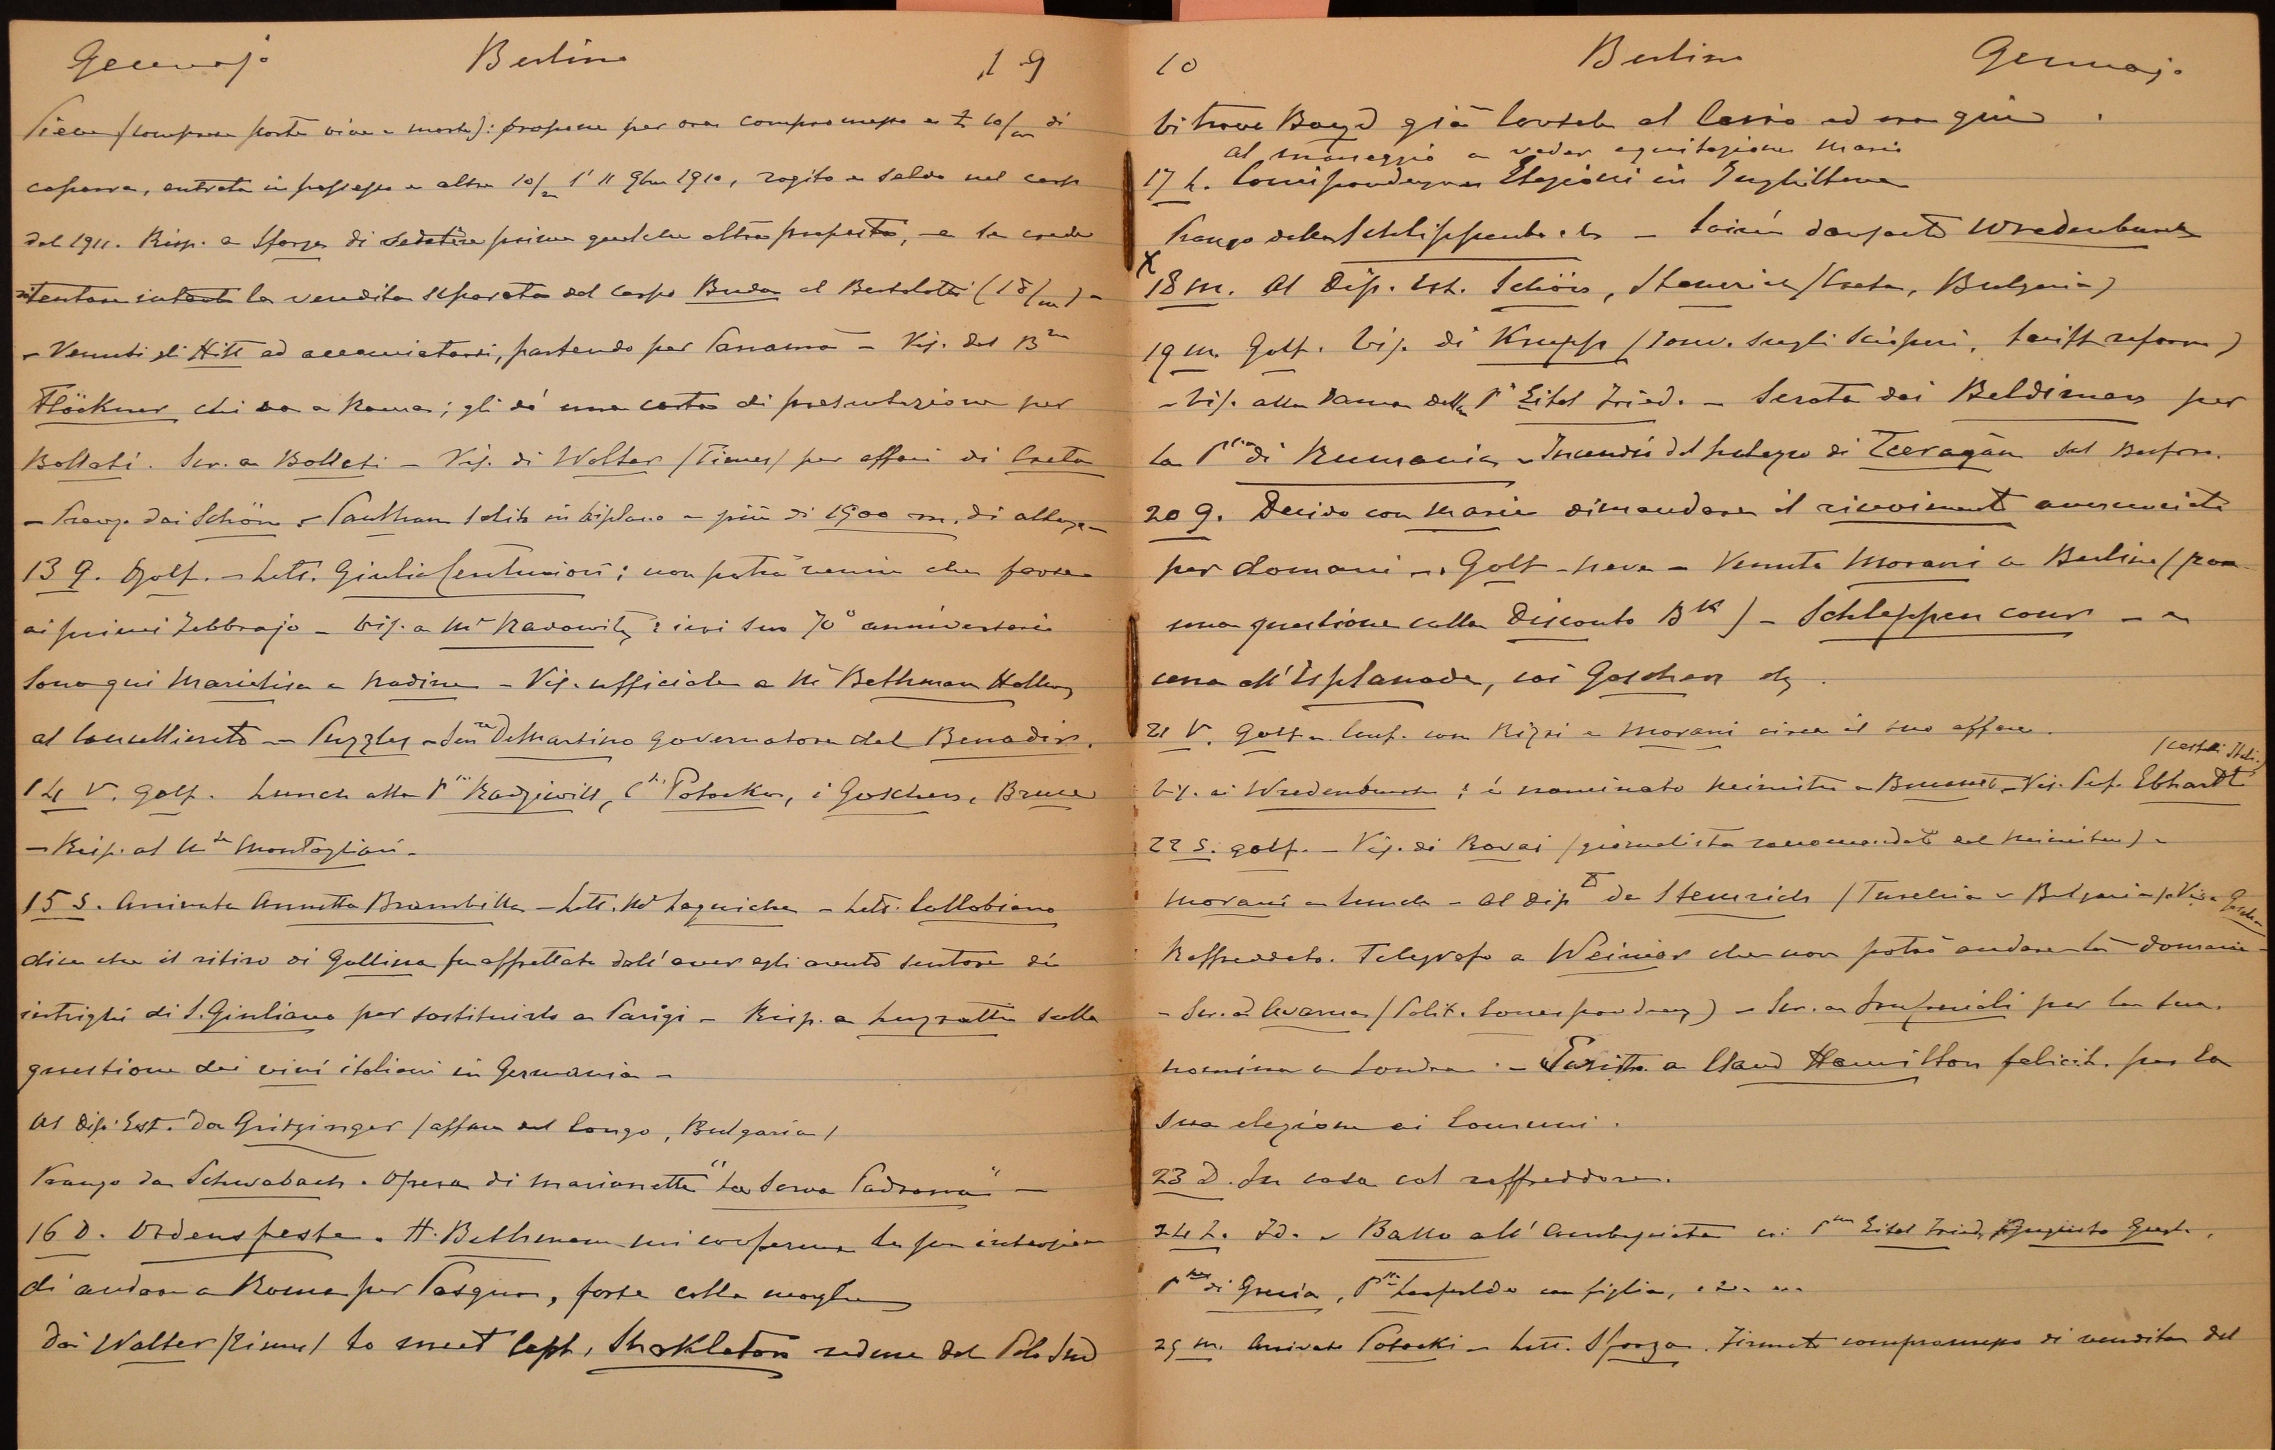 Gennajo Berlino 19
Pieve (comprese scorte vive e morte): propone per ora compromesso a £ 10/m di
caparra, entrata in possesso e altre 10/m l' 11 9bre 1910, rogito e saldo nel corso
del 1911. Risp. a Sforza di prima qualche altra proposta, e se crede
la vendita separata del corpo Buda al Bertolotti (18/m) -
- Venuti gli Hitt ad accomiatarsi, partendo per Panamà - Vis. del Bne
Flöckner chi va a Roma; gli dò una carta di presentazione per
Bollati. Scr. a Bollati - Vis. di Wolter (Times) per affari di Creta
- Pranzo dai Schön - Paulhan salito in biplano a più di 1500 m. di altezza -
13 G. Golf. - Lett. Giulia Centurioni: non potrà venire che forse
ai primi Febbrajo - Vis. a Mr Radowitz: ieri suo 70° anniversario
Sono qui Marielisa e Nadine - Vis. ufficiale a Me Bethman Hollweg
al Cancellierato - Puzzles - Senre DeMartino governatore del Benadir.
14 V. Golf. Lunch alla Pssa Radziwill, Css Potocka, i Goschen, Bruce
- Risp. al Mse Montagliari -
15 S. Arrivata Annetta Brambilla - Lett. Collobiano
dice che il ritiro di Gallina fu affrettato dall'aver egli avuto sentore di
intrighi di S. Giuliano per sostituirlo a Parigi - Risp. a Luzzatti sulla
questione dei vini italiani in Germania -
Al Dip. Est. da Gritzinger (affare del Congo, Bulgaria)
Pranzo da Schwabach. Opera di marionette "La Serva Padrona" -
16 D. Ordensfeste. H. Bethmann mi conferma la sua intenzione
di andare a Roma per Pasqua, forse colla moglie
Dai Walter (Times) to meet Capt. Shakleton reduce dal Polo Sud
10 Berlino Gennajo
Vi trovo Boyd già console al Cairo ed ora qui.
al maneggio a veder equitazione Marie
17 L. Elezioni in Inghilterra
Pranzo dalla Schlippenbach - Soirée dansante Wredenburch
x
18 M. Al Dip. Est. Schön, Stemrich (Creta, Bulgaria)
19 M. Golf. Vis. di Krupp (conv. sugli scioperi, tariff reform)
- Vis. alla Dama della Pss Eitel Fried. - Serata dai Beldiman per
la Pssa di Rumania - Incendio del palazzo di Tceragan sul Bosforo.
20 G. Decido con Marie dimandare il ricevimento annunciato
per domani - Golf - neve - Venuto Morani a Berlino (per
una questione colla Disconto Bk) - Schleppen cour - e
cena all'Esplanade, coi Goschen etc.
21 V. Golf - Conf. con Rizzi e Morani circa il suo affare.
Vis. ai Wredenburch: è nominato Ministro a - Vis. Prof. Ebhardt
22 S. golf. - Vis. di Rovai (giornalista raccomandato dal Ministero) -
Morani a lunch - Al Dipto da Stemrich (Turchia e Bulgaria) - Vis. a Goschen
Raffreddato. Telegrafo a Weimar che non potrò andare là domani -
- Scr. ad Avarna (Polit. Correspondenz) - Scr. a Imperiali per la sua
nomina a Londra. - Scritto a Claud Hamilton felicit. per la
sua elezione ai Comuni.
23 D. In casa col raffreddore.
24 L. Id. - Ballo all'Ambasciata coi Pssa Eitel Fried,
di Grecia, con figlia,
25 M. Arrivato Potocki - Lett. Sforza. Firmato compromesso di vendita del